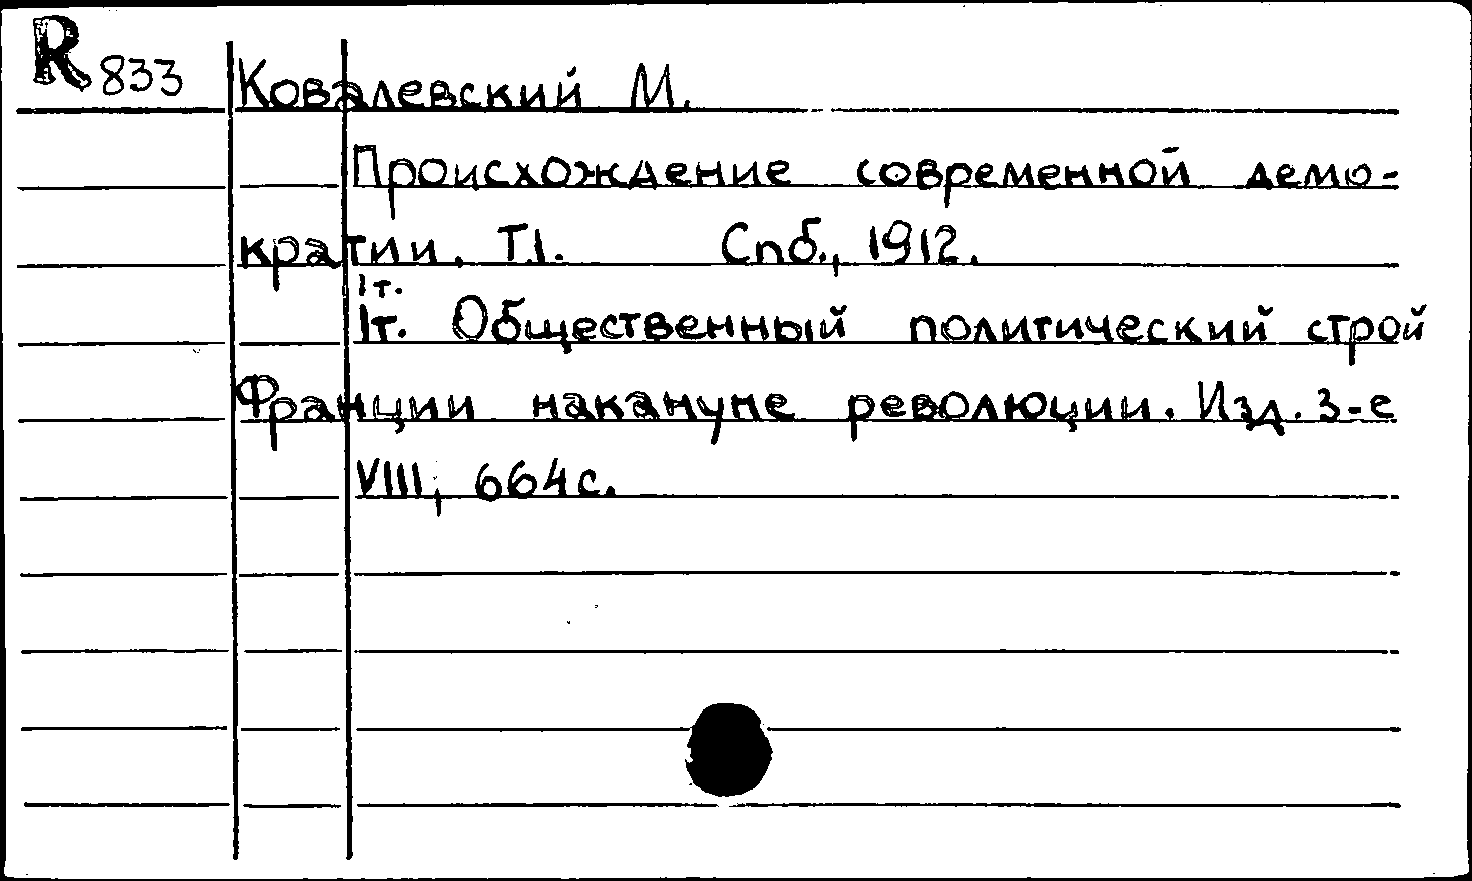 R 833
Ковалевский М.
Происхождение современной демо-
кратии. Т.1. Спб., 1912.
1т.
1т. Общественный политический строй
Франции накануне революции. Изд. 3-е
VIII, 664с.